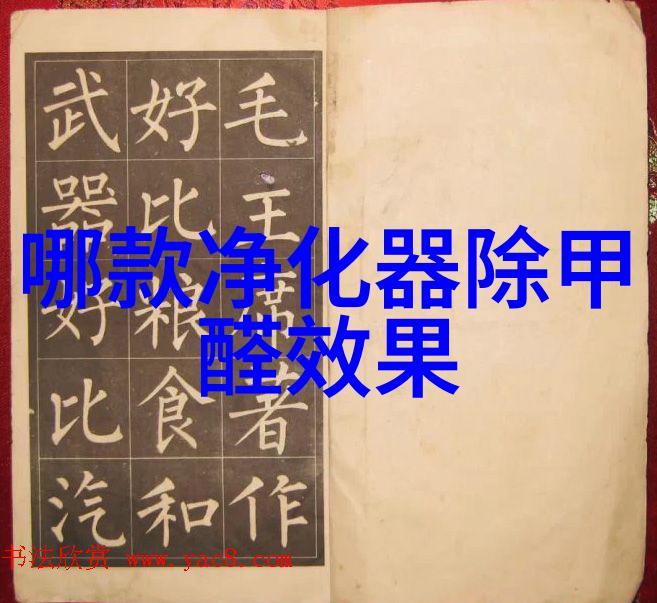 哪款净化器除甲
醛效果
毛主席著作
好比粮食和
武器好比汽
书法欣赏 www.yac8.com